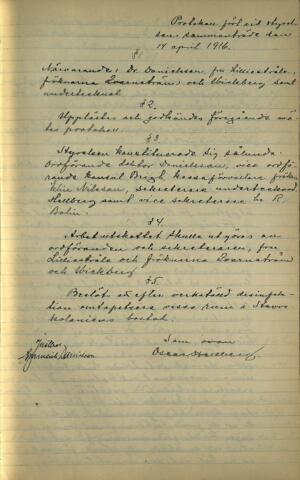 Protokoll förd vid styrel-
sens sammanträde den
14 april 1916.
§1.
Närvarande: Dr. Danielsson, fru Lilliestråle,
fröknarna Quarnström och Wickberg samt
undertecknad.
§2.
Upplästes och godkändes föregående mö-
tes protokoll.
§3.
Styrelsen konstituerade sig sålunda:
Ordförande doktor Danielsson, vice ordfö-
rande konsul Bergh, kassaförvaltare fröken
Elin Nilsson, sekreterare undertecknad
Hallberg samt vice sekreterare hr R.
Bolin.
§4.
Arbetsutskottet skulle utgöras av
ordföranden och sekreteraren, fru
Lilliestråle och fröknarna Quarnström
och Wickberg.
§5.
Beslöt att efter verkställd desinfek-
tion omtapetsera vissa rum i
koloniens bostad.
Som ovan
Justeras
Oscar Hallberg.
Danielsson